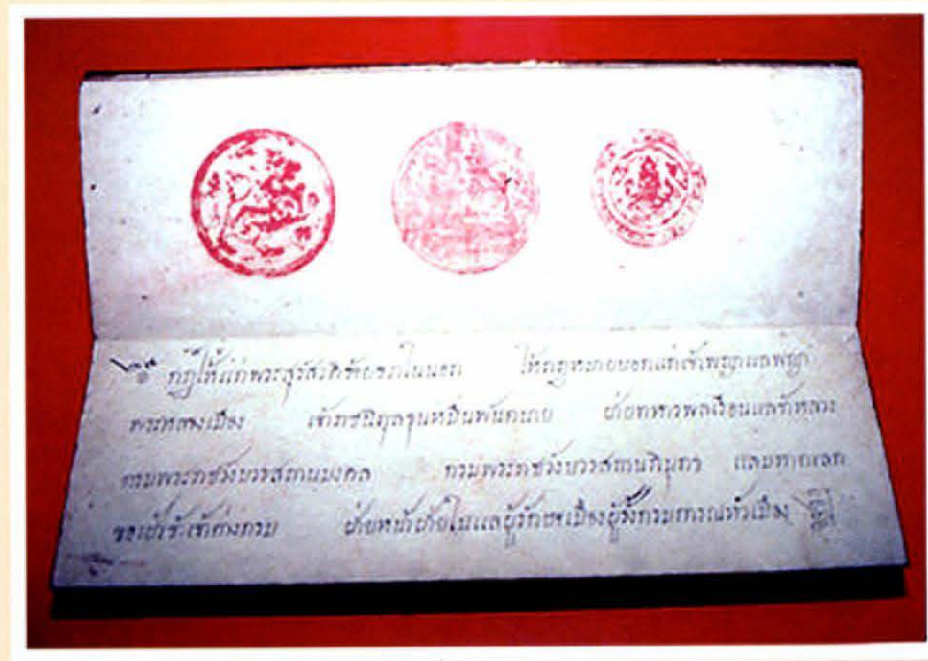 ๏ กฎให้แก่พระสุรัสวดีซ้ายขวาในนอก ให้กฎหมายบอกแก่เจ้าพญาแลพญา
พระหลวงเมือง เจ้าราชนิกุลขุนหมื่นพันทนาย ฝ่ายทหารพลเรือนแลข้าหลวง
กรมพระราชวังบวรสถานมงคล กรมพระราชวังบวรสถานภิมุกฃ แลมหาดเลก
ขอเฝ้าข้าเจ้าต่างกรม ฝ่ายหน้าฝ่ายในแลผู้รักษาเมืองผู้รั้งกรมการณหัวเมือง